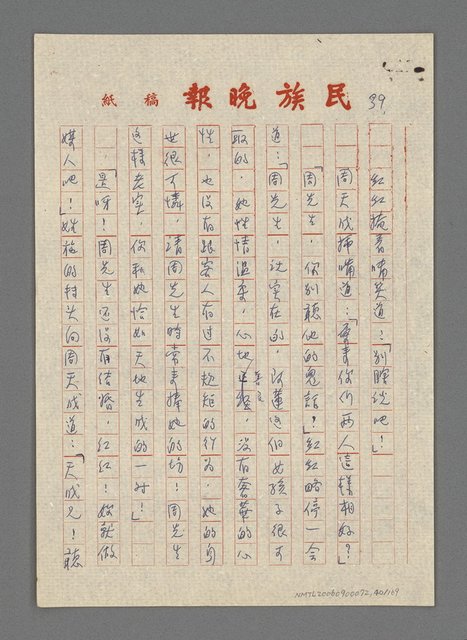 民族晚報 稿紙
39
紅紅掩着嘴笑道：「別瞎說吧！」
周天成插嘴道：「看看你們兩人這樣相好？」
「周先生，你別聽他的鬼話？」紅紅略停一會
道：「周先生，說實在的，阿蓮這個女孩子很可
取的，她性情溫柔，心地善良，沒有奢華的心
性，也沒有跟客人有过不規矩的行为，她的身
世很可憐，請周先生時常來捧她的場！周先生
这樣老实，你和她恰如天地生成的一对！」
「是呀！周先生还沒有结婚，紅紅！妳就做
媒人吧！」姓施的轉头向周天成道：「天成兄！聽
NMTL20060900072,40/169